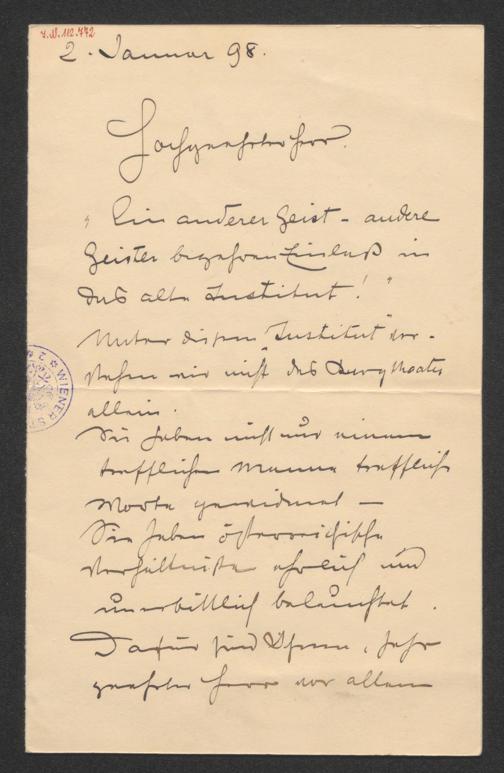 J.N. 112.772
2. Januar 98.
Hochgeehrter Herr.
„Ein anderer Geist – andere
Geister begehren Einlaß in
das alte Institut!"
Unter diesem „Institut" ver-
stehen wir nicht das Burgtheater
allein.
Sie haben nicht nur einem
trefflichen Manne treffliche
Worte gewidmet –
Sie haben österreichische
Verhältnisse ehrlich und
unerbittlich beleuchtet.
Dafür sind Ihnen, sehr
geehrter Herr vor allem
WIENER ST